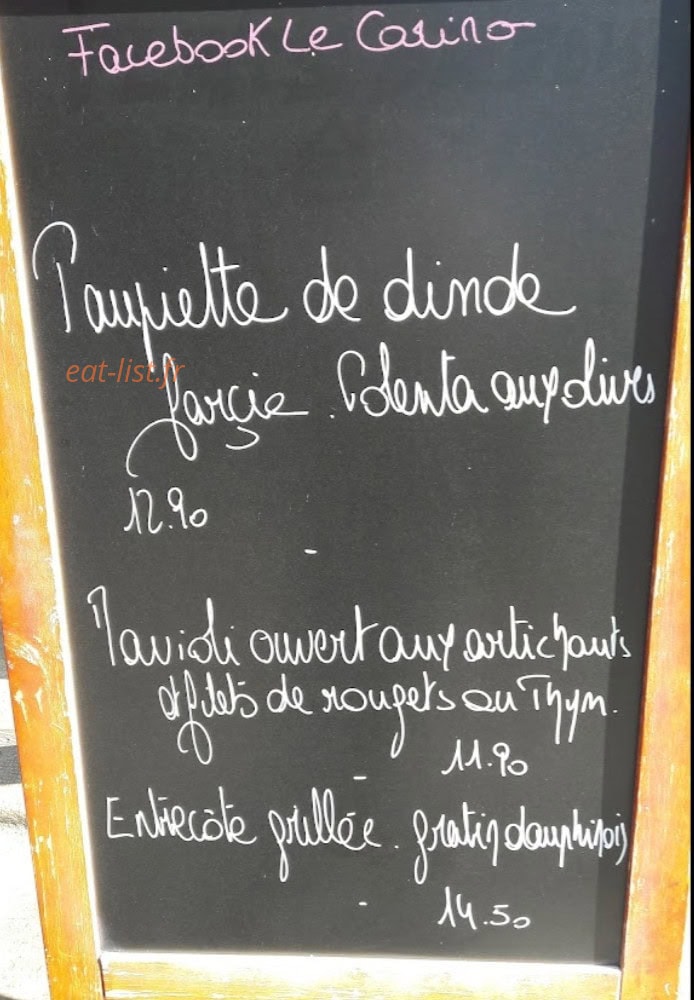 Facebook Le Carino
Paupiette de dinde
eat-list.fr
farçie. Polenta aux olives
12.90
-
Ravioli ouvert aux artichauts
et filets de rougets au Thym.
11.90
-
Entrecôte grillée. gratin dauphinois
-
14.50